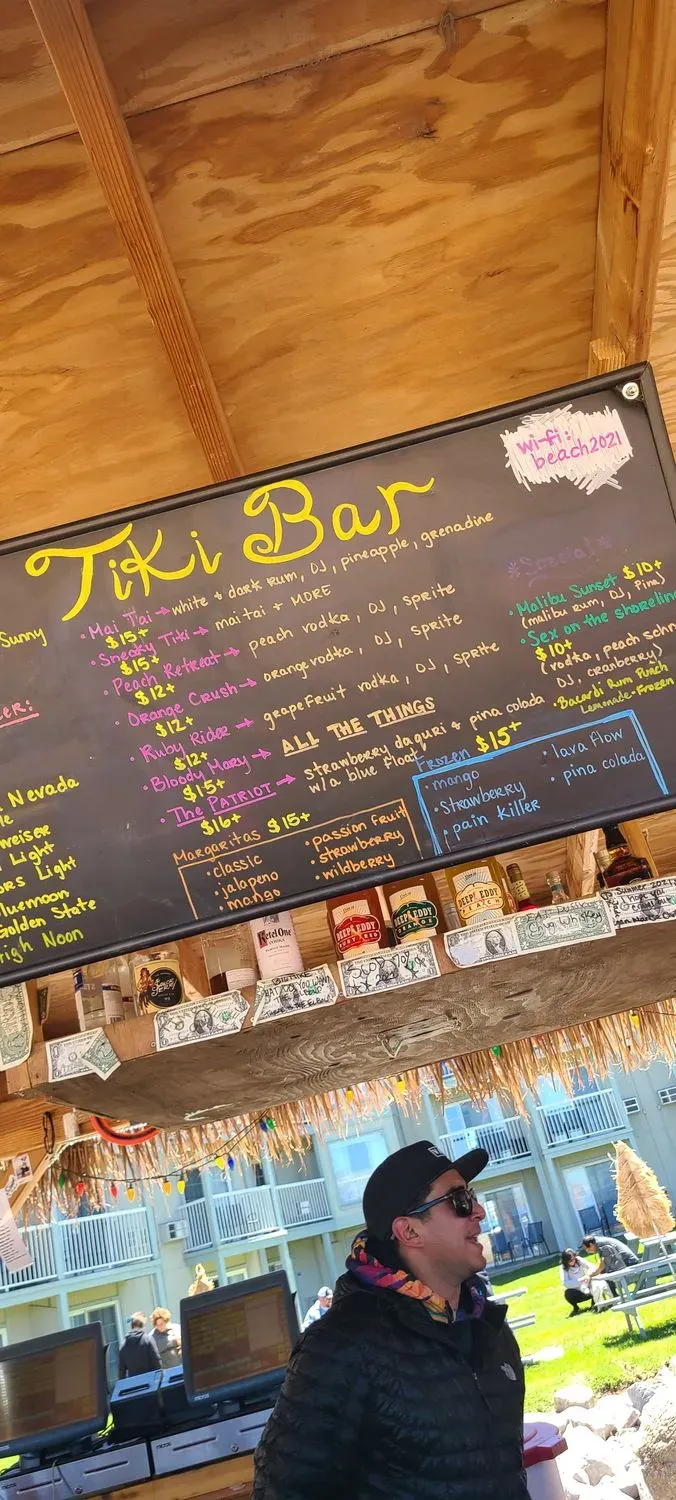 Tiki Bar
wi-fi:
beach2021
Sunny
• Mai Tai → white & dark rum, OJ, pineapple, grenadine
$15+
• Sneaky Tiki → mai tai + MORE
$15+
• Peach Retreat → peach vodka, OJ, sprite
$12+
• Orange Crush → orange vodka, OJ, sprite
$12+
• Ruby Rider → grapefruit vodka, OJ, sprite
$12+
• Bloody Mary → ALL THE THINGS
$15+
• The PATRIOT → strawberry daquri & pina colada
w/a blue float
$16+
*Special*
• Malibu Sunset $10+
(malibu rum, OJ, Pina)
• Sex on the shoreline
$10+
(vodka, peach schn
OJ, cranberry)
• Bacardi Rum Punch
Lemonade-Frozen
Nevada
weiser
Light
ors Light
luemoon
Golden State
High Noon
Margaritas $15+
• classic
• jalapeno
• mango
• passion fruit
• strawberry
• wildberry
Frozen $15+
• mango
• strawberry
• pain killer
• lava flow
• pina colada
Ketel One
VODKA
DEEP EDDY
RUBY RED
DEEP EDDY
ORANGE
DEEP EDDY
PEACH
Summer 2021
micros
micros